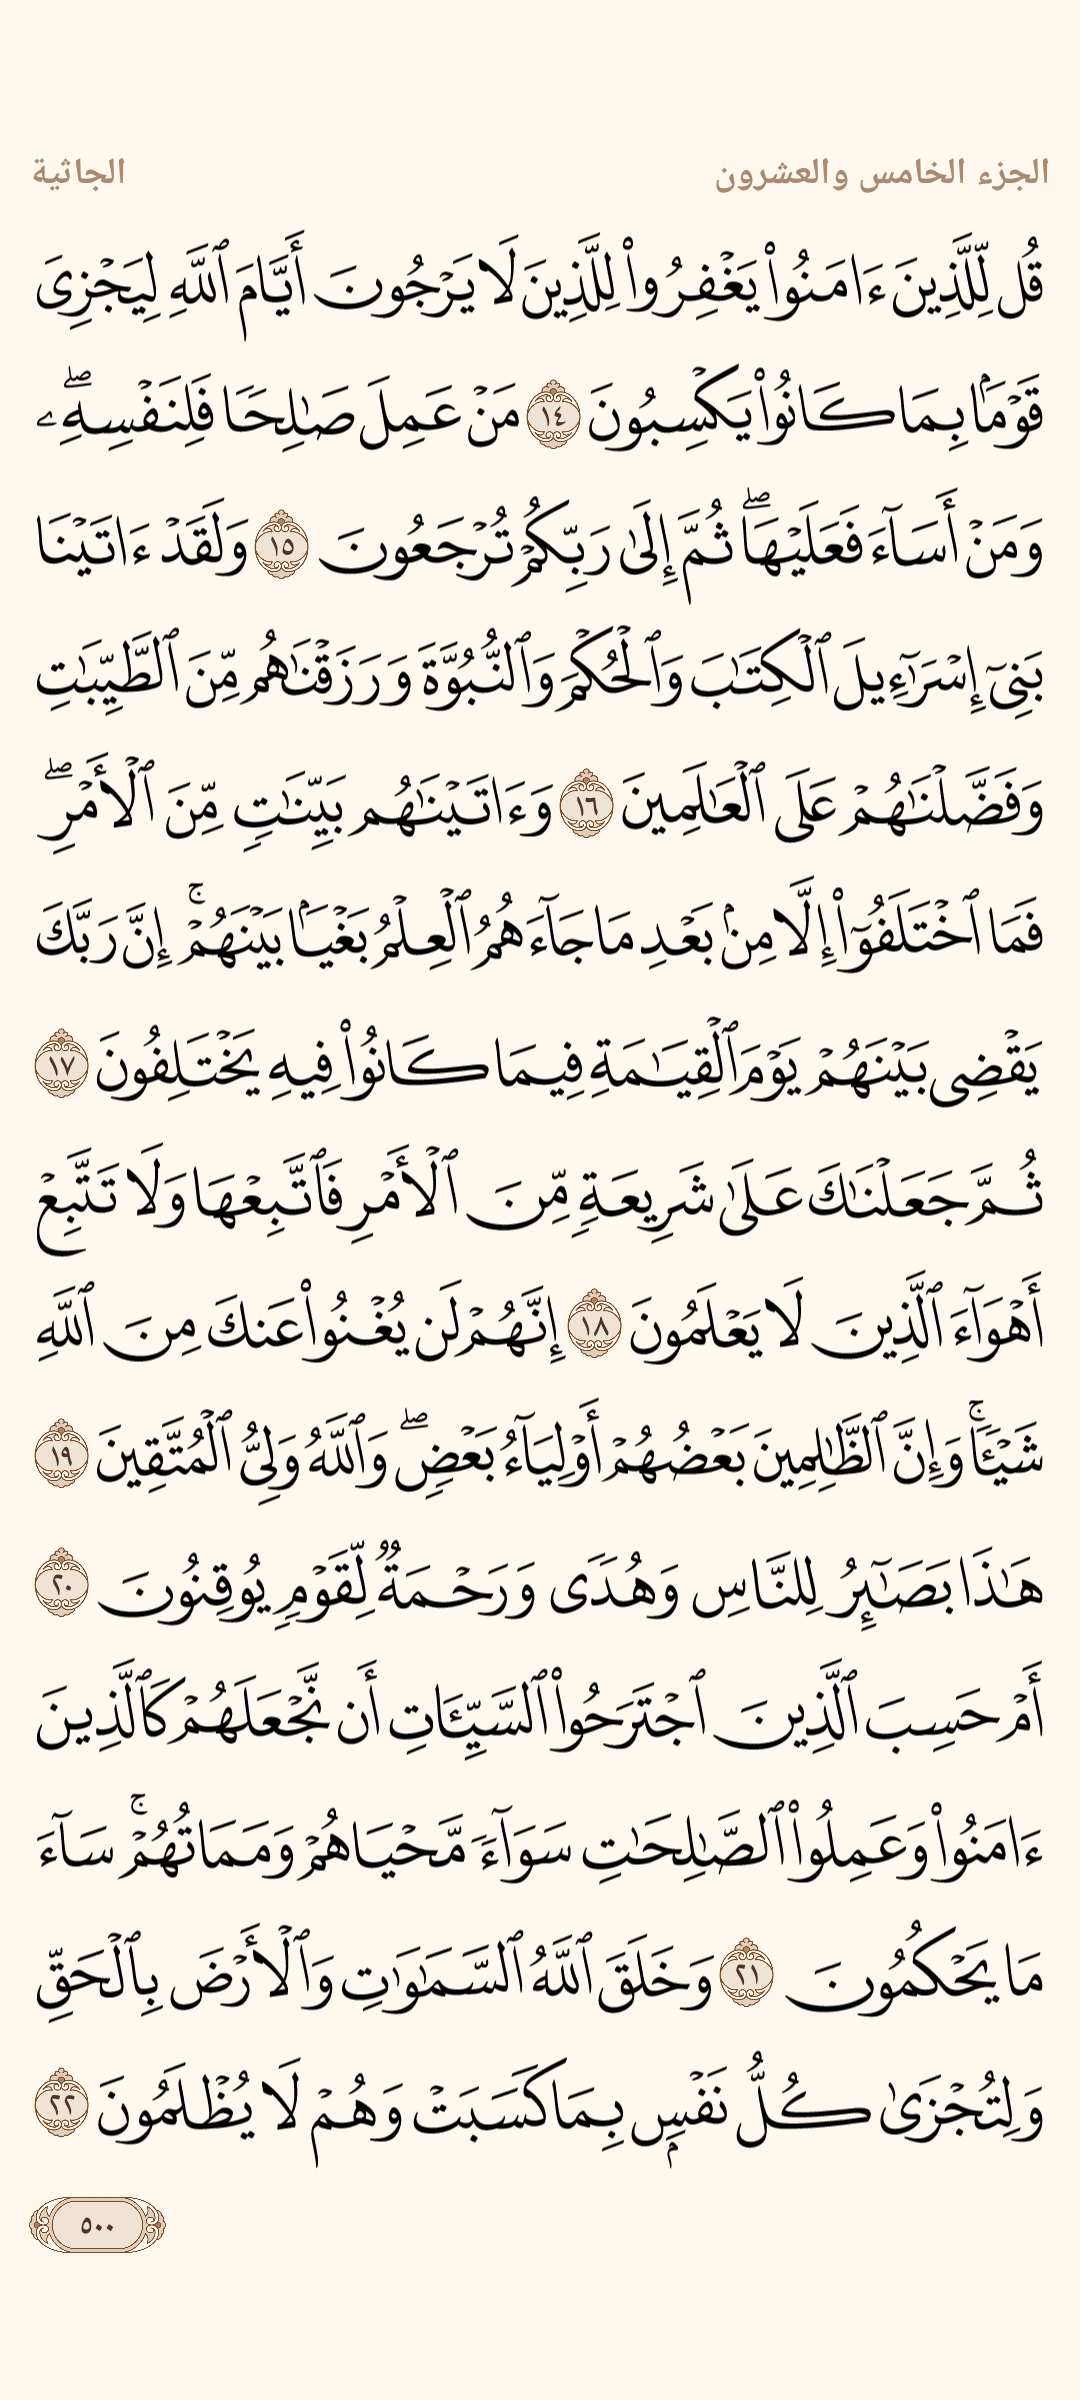 الجزء الخامس والعشرون
الجاثية
قُل لِّلَّذِينَ ءَامَنُوا۟ يَغْفِرُوا۟ لِلَّذِينَ لَا يَرْجُونَ أَيَّامَ ٱللَّهِ لِيَجْزِىَ
قَوْمًۢا بِمَا كَانُوا۟ يَكْسِبُونَ ١٤ مَنْ عَمِلَ صَـٰلِحًا فَلِنَفْسِهِۦ ۖ
وَمَنْ أَسَآءَ فَعَلَيْهَا ۖ ثُمَّ إِلَىٰ رَبِّكُمْ تُرْجَعُونَ ١٥ وَلَقَدْ ءَاتَيْنَا
بَنِىٓ إِسْرَٰٓءِيلَ ٱلْكِتَـٰبَ وَٱلْحُكْمَ وَٱلنُّبُوَّةَ وَرَزَقْنَـٰهُم مِّنَ ٱلطَّيِّبَـٰتِ
وَفَضَّلْنَـٰهُمْ عَلَى ٱلْعَـٰلَمِينَ ١٦ وَءَاتَيْنَـٰهُم بَيِّنَـٰتٍ مِّنَ ٱلْأَمْرِ ۖ
فَمَا ٱخْتَلَفُوٓا۟ إِلَّا مِنۢ بَعْدِ مَا جَآءَهُمُ ٱلْعِلْمُ بَغْيًۢا بَيْنَهُمْ ۚ إِنَّ رَبَّكَ
يَقْضِى بَيْنَهُمْ يَوْمَ ٱلْقِيَـٰمَةِ فِيمَا كَانُوا۟ فِيهِ يَخْتَلِفُونَ ١٧
ثُمَّ جَعَلْنَـٰكَ عَلَىٰ شَرِيعَةٍ مِّنَ ٱلْأَمْرِ فَٱتَّبِعْهَا وَلَا تَتَّبِعْ
أَهْوَآءَ ٱلَّذِينَ لَا يَعْلَمُونَ ١٨ إِنَّهُمْ لَن يُغْنُوا۟ عَنكَ مِنَ ٱللَّهِ
شَيْـًٔا ۚ وَإِنَّ ٱلظَّـٰلِمِينَ بَعْضُهُمْ أَوْلِيَآءُ بَعْضٍ ۖ وَٱللَّهُ وَلِىُّ ٱلْمُتَّقِينَ ١٩
هَـٰذَا بَصَـٰٓئِرُ لِلنَّاسِ وَهُدًى وَرَحْمَةٌ لِّقَوْمٍ يُوقِنُونَ ٢٠
أَمْ حَسِبَ ٱلَّذِينَ ٱجْتَرَحُوا۟ ٱلسَّيِّـَٔاتِ أَن نَّجْعَلَهُمْ كَٱلَّذِينَ
ءَامَنُوا۟ وَعَمِلُوا۟ ٱلصَّـٰلِحَـٰتِ سَوَآءً مَّحْيَاهُمْ وَمَمَاتُهُمْ ۚ سَآءَ
مَا يَحْكُمُونَ ٢١ وَخَلَقَ ٱللَّهُ ٱلسَّمَـٰوَٰتِ وَٱلْأَرْضَ بِٱلْحَقِّ
وَلِتُجْزَىٰ كُلُّ نَفْسٍۭ بِمَا كَسَبَتْ وَهُمْ لَا يُظْلَمُونَ ٢٢
٥٠٠